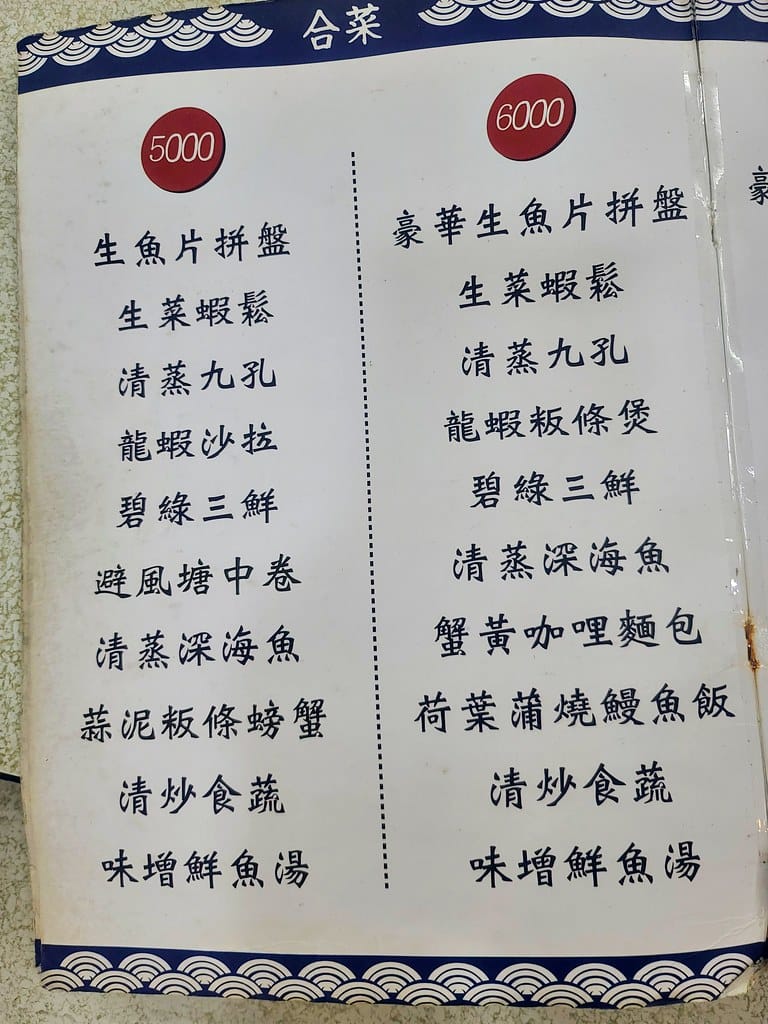 合菜
5000
生魚片拼盤
生菜蝦鬆
清蒸九孔
龍蝦沙拉
碧綠三鮮
避風塘中卷
清蒸深海魚
蒜泥粄條螃蟹
清炒食蔬
味增鮮魚湯
6000
豪華生魚片拼盤
生菜蝦鬆
清蒸九孔
龍蝦粄條煲
碧綠三鮮
清蒸深海魚
蟹黃咖哩麵包
荷葉蒲燒鰻魚飯
清炒食蔬
味增鮮魚湯
豪